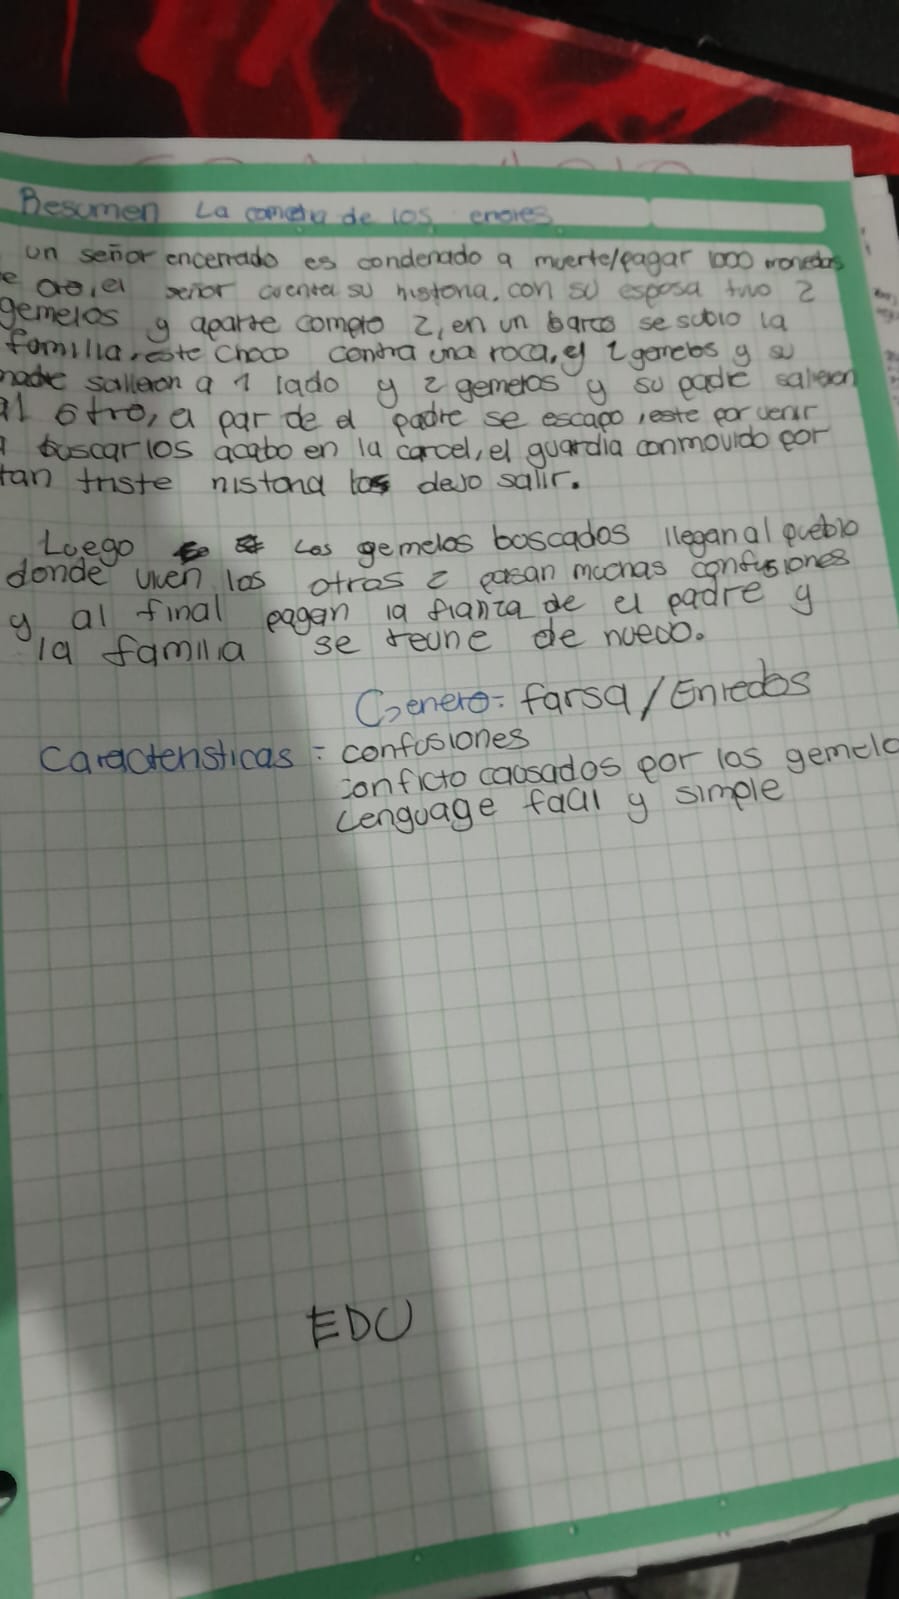 Resumen La comedia de los enores
un señor encerrado es condenado a muerte/pagar 1000 monedas
e oro, el señor cuenta su historia, con su esposa tuvo 2
gemelos y aparte compro 2, en un barco se subio la
familia, este choco contra una roca, y 2 gemelos y su
madre salieron a 1 lado y 2 gemelos y su padre salieron
al otro, a par de el padre se escapo, este por venir
a buscarlos acabo en la carcel, el guardia conmovido por
tan triste historia los dejo salir.
Luego Los gemelos buscados llegan al pueblo
donde viven los otros 2 pasan muchas confusiones
y al final pagan la fianza de el padre y
la familia se reune de nuevo.
Genero: farsa/Enredos
Caracteristicas: confusiones
conficto causados por los gemelo
Lenguage facil y simple
EDU